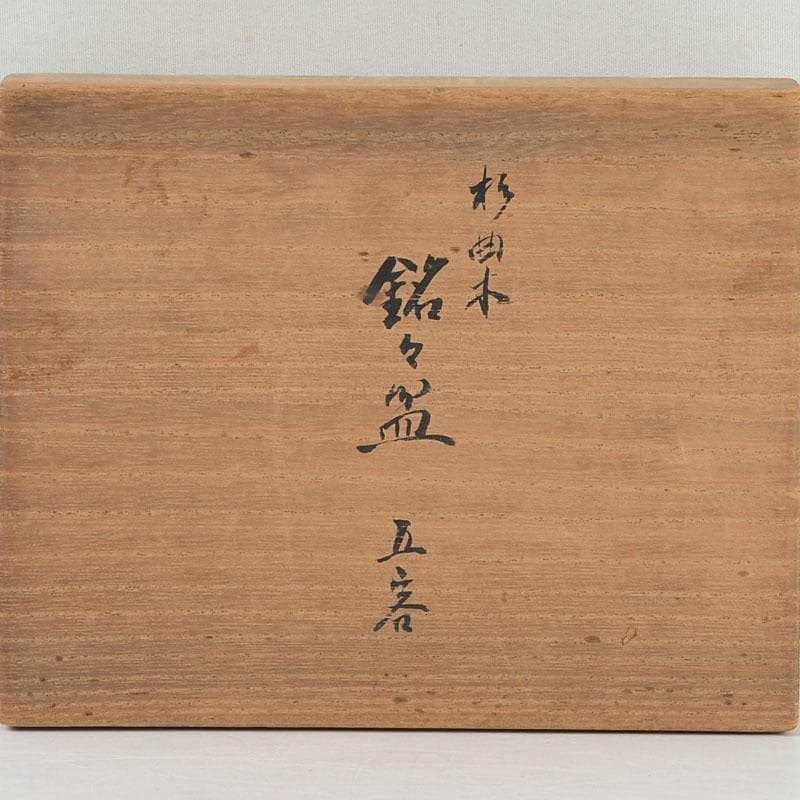 杉曲木
銘々盆 五客